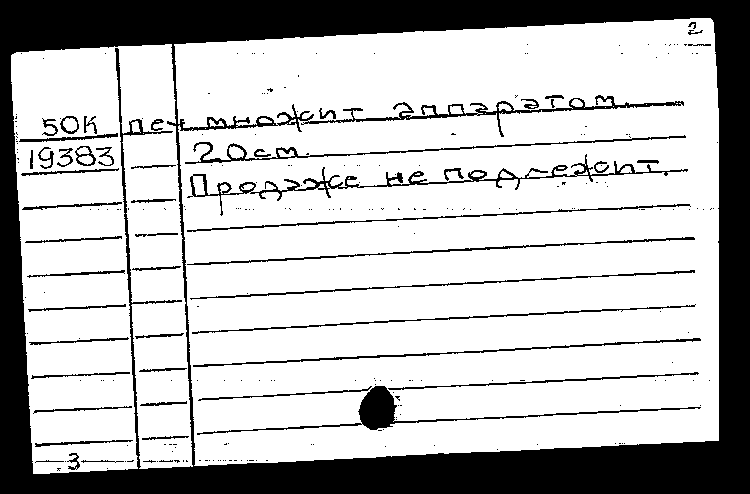 2
50К печ множит аппаратом.
19383 20см.
Продаже не подлежит.
3